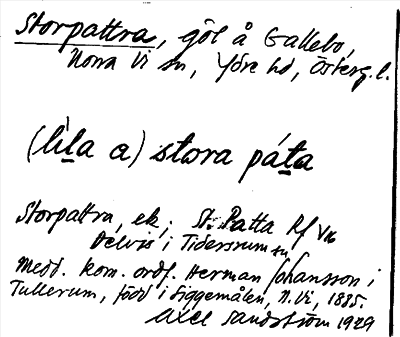 Storpattra, göl å Gallebo,
Norra Vi sn, Ydre hd, Österg.l.
(lìla a) stora páta
Storpattra, ek.; St. Patta Rf VII6
Delvis i Tidersrum sn
Medd. kom. ordf. Herman Johansson i
Tullerum, född i Siggemålen, N. Vi, 1885.
Axel Sandström 1929